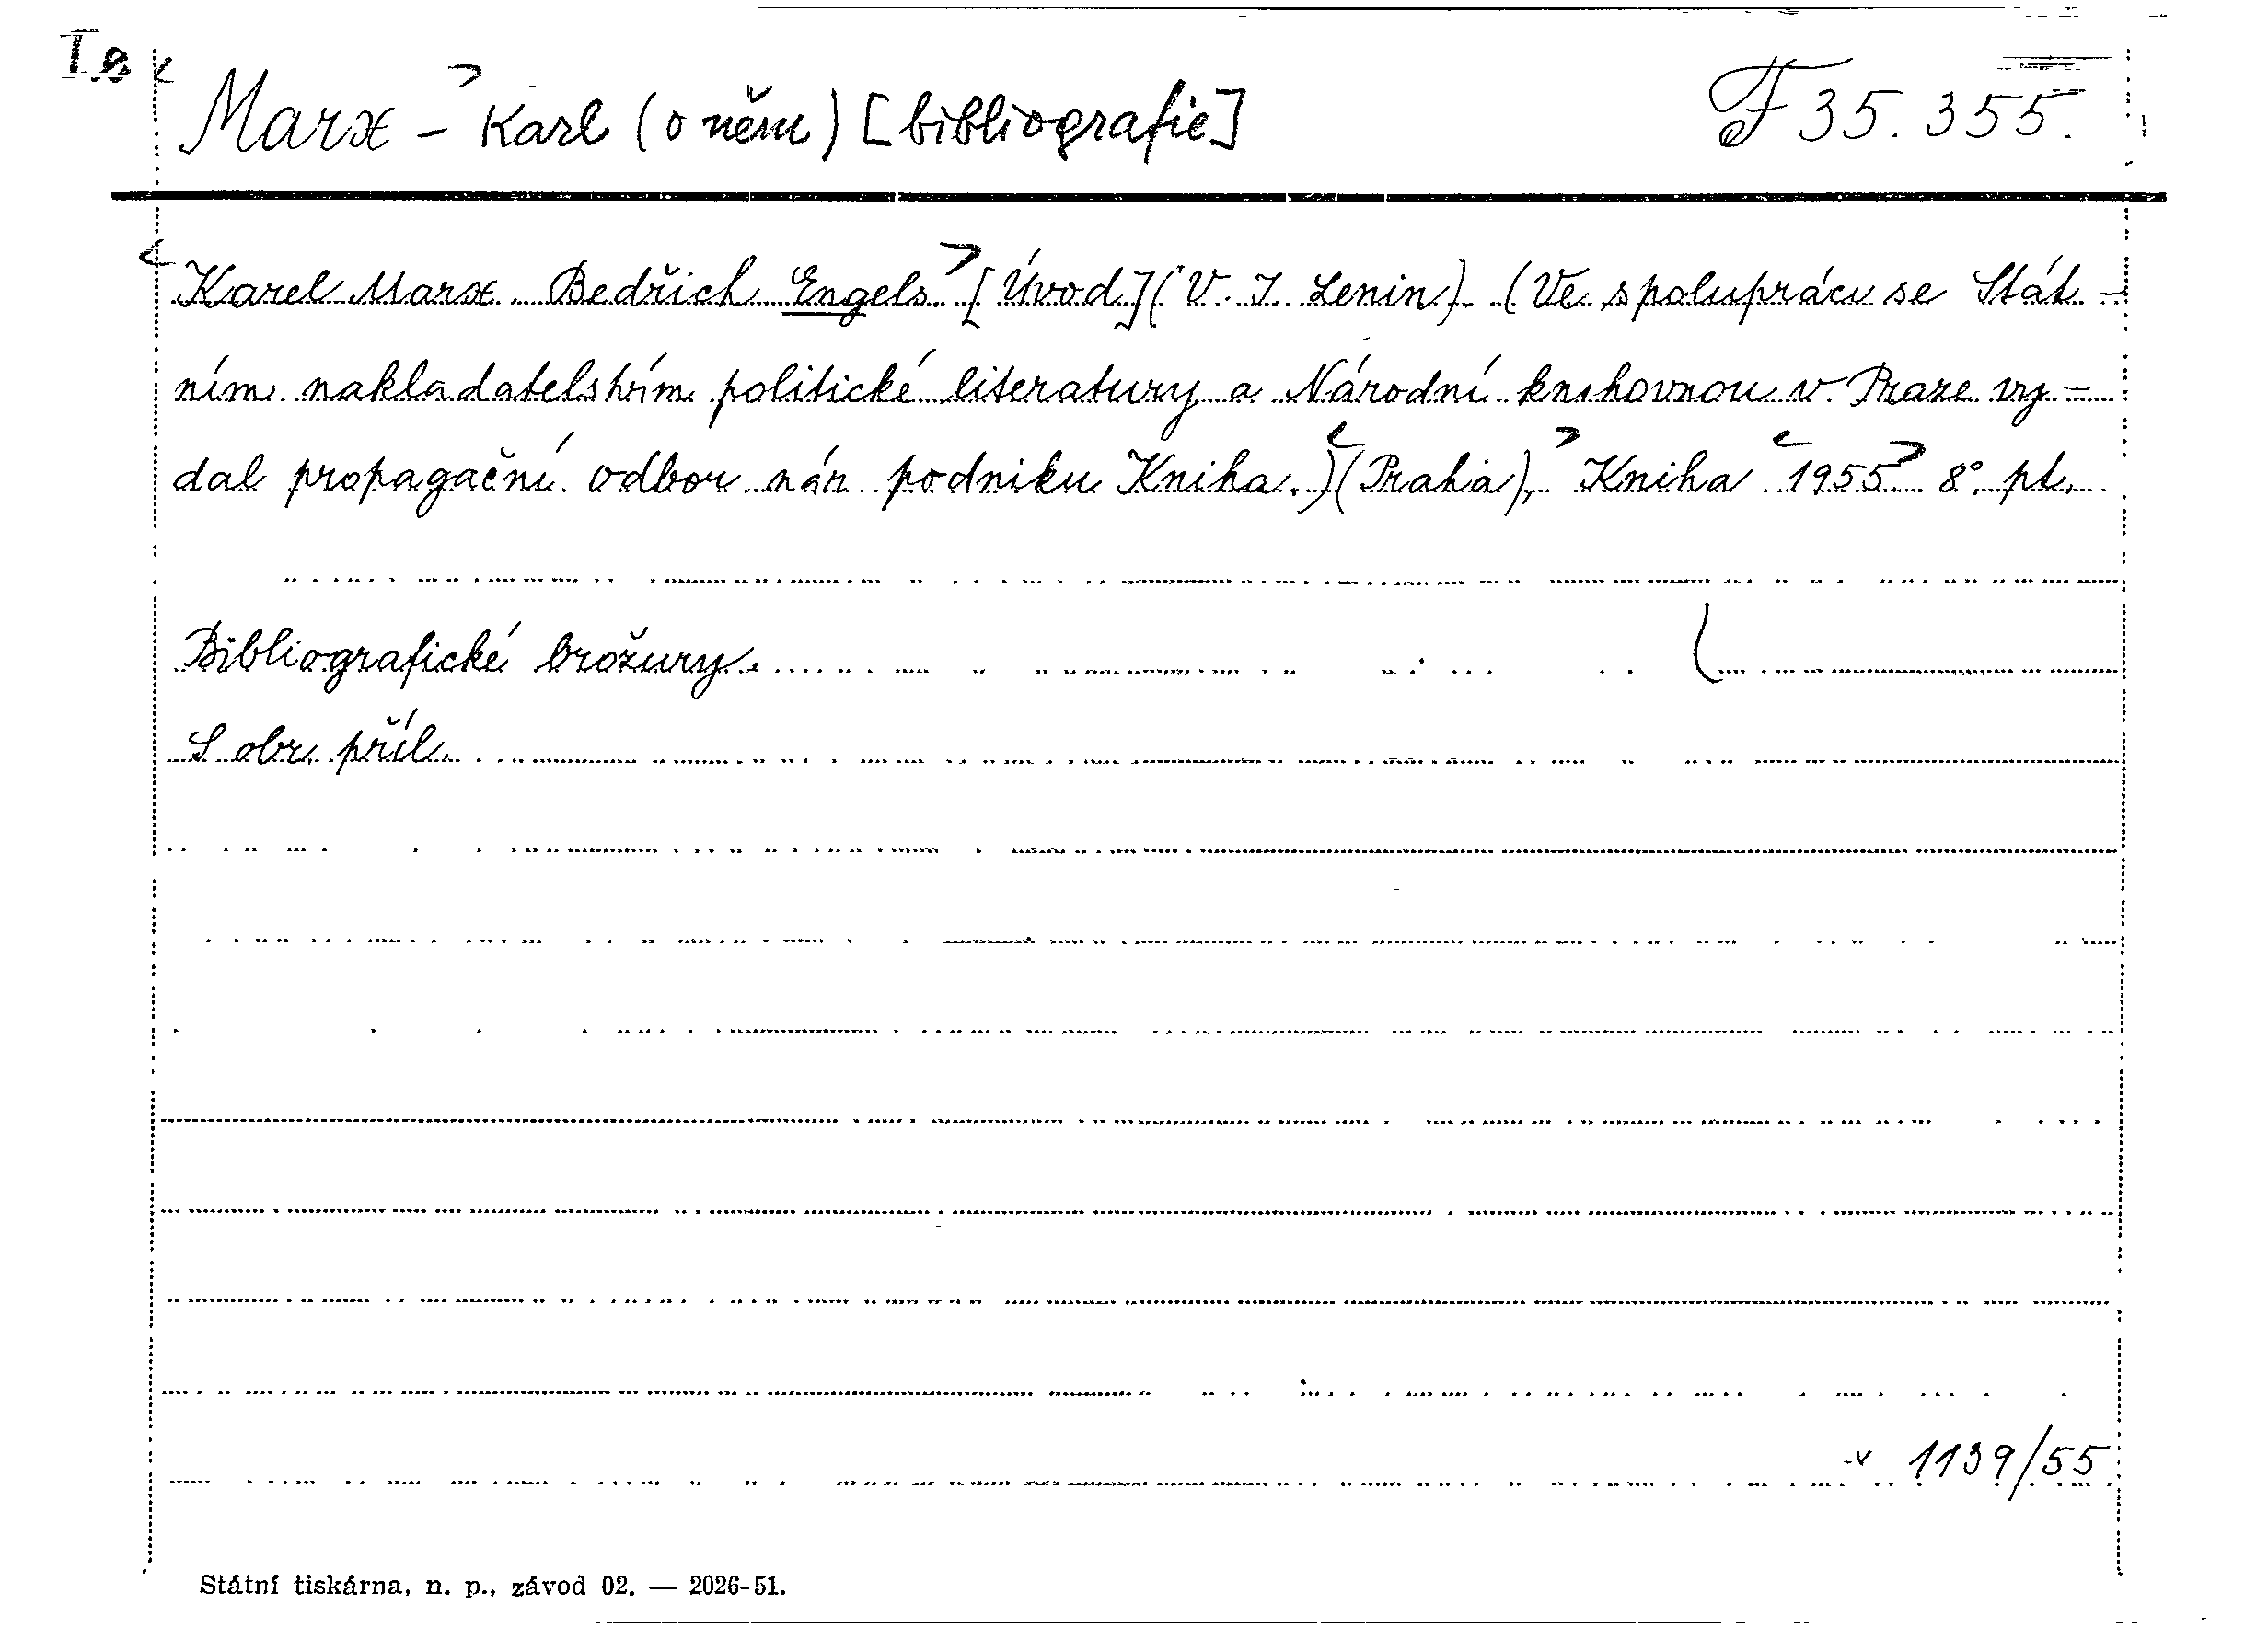 Marx - Karl (o něm) [bibliografie] F 35.355.
Karel Marx. Bedřich Engels [Úvod] (V. I. Lenin). (Ve spolupráci se Stát-
ním nakladatelstvím politické literatury a Národní knihovnou v Praze vy-
dal propagační odbor nár. podniku Kniha.) (Praha), Kniha 1955. 8° pt.
Bibliografické brožury.
S obr. příl.
1139/55
Státní tiskárna, n. p., závod 02. — 2026-51.